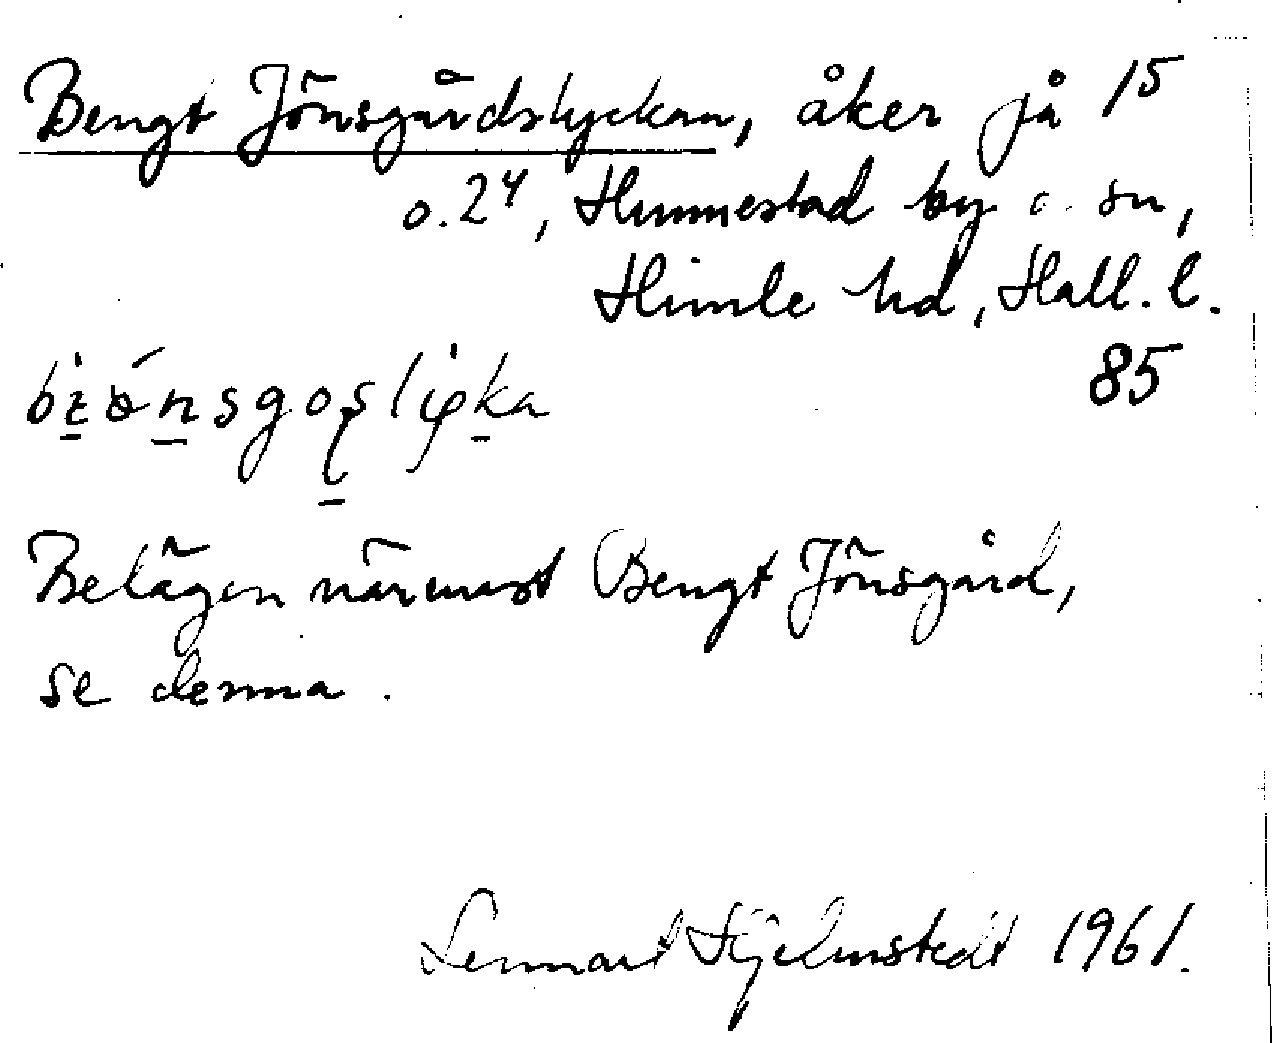 Bengt Jönsgårdslyckan, åker på 15
o. 2⁴, Hunnestad by o. sn,
Himle hd, Hall. l.
85
Belägen närmast Bengt Jönsgård,
se denna.
Lennart Hjelmstedt 1961.